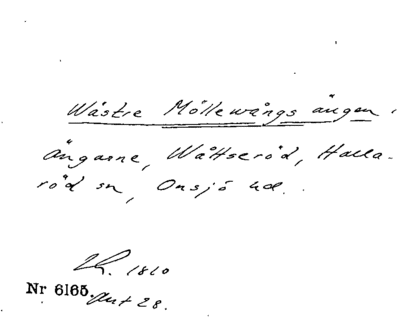 Wästre Möllewångs ängen i
ängarne, Wåttseröd, Halla-
röd sn, Onsjö hd.
1810
Nr 6165. Akt 28.